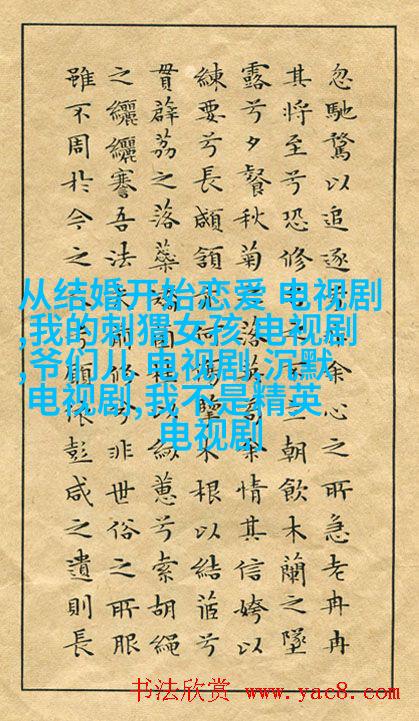 忽馳騖以追逐余心之所急老冉冉
其將至兮恐修朝飲木蘭之墜
露兮夕餐秋菊落情其信姱以
練要兮長顑頷何傷擥木根以結茝兮
貫薜荔之落蕊矯菌紉蕙兮索胡繩
之纚纚謇吾法前修兮非世俗之所服
雖不周於今之兮願依彭咸之遺則長
从结婚开始恋爱 电视剧
,我的刺猬女孩 电视剧
,爷们儿 电视剧,沉默
电视剧,我不是精英
电视剧
书法欣赏 www.yac8.com